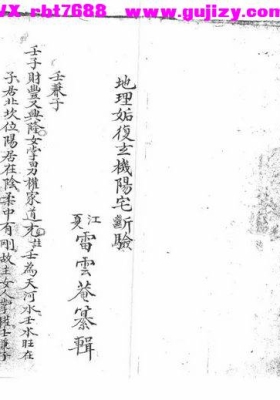 VX-rbt7688 www.gujizy.com
地理姤復玄機陽宅斷驗
江夏 雷雲菴纂輯
壬兼子
壬子財豐又興隆女掌男權家道充註壬為天河水壬水旺在
子君北坎位陽居在陰柔中有剛故主女人掌權壬兼子